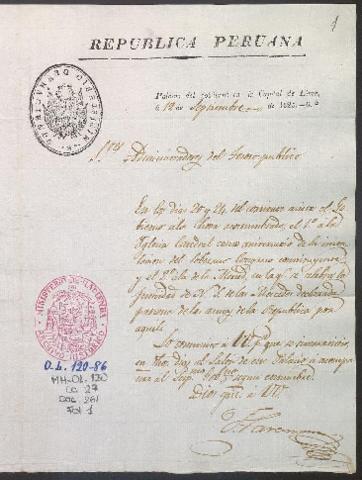 1
REPUBLICA PERUANA
Palacio del gobierno en la Capital de Lima,
á 18 de Septiembre de 1825.—6.º
S.res Administradores del Tesoro publico
En los dias 20 y 24 del corriente asiste el Go-
bierno á la hora acostumbrada, el 1.º á la
Iglesia Catedral como aniversario de la insta-
lacion del Soberano Congreso constituyente,
y el 2.º á la de la Merced, en la q.e se celebra la
festividad de N. S. de las Mercedes declarada
patrona de las armas de la Republica por
aquel.
Lo comunico á VV. p.a que se sirvan venir
en dhos. dias al Salon de este Palacio á acompa-
ñar al Sup.mo Gob.no segun costumbre.
Dios gue. á VV.
MINISTERIO DE HACIENDA
O.L. 120-86
MH-OL 120
CC 27
DOC 261
Fol 1